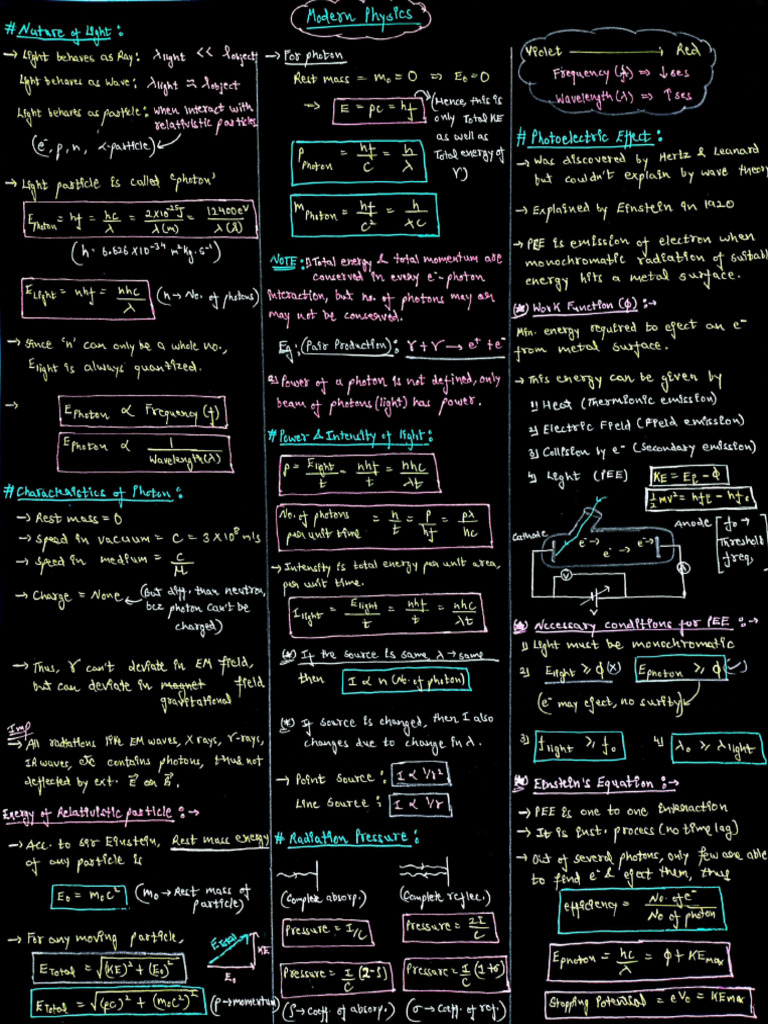 Modern Physics
# Nature of Light :
→ Light behaves as Ray : λlight << lobject
Light behaves as Wave : λlight ≈ lobject
Light behaves as particle : when interact with
relativistic particles
(e⁻, p, n, α-particle)
→ Light particle is called 'photon'
Ephoton = hf = hc/λ = 2×10⁻²⁵J/λ(m) = 12400eV/λ(Å)
(h = 6.626×10⁻³⁴ m²kg.s⁻¹)
ELight = nhf = nhc/λ (n → No. of photons)
→ Since 'n' can only be a whole no.,
Elight is always quantized.
→ EPhoton ∝ Frequency (f)
EPhoton ∝ 1/Wavelength(λ)
# Characteristics of Photon :
→ Rest mass = 0
→ Speed in vacuum = C = 3×10⁸ m/s
→ Speed in medium = C/μ
→ Charge = None (But diff. than neutron,
bcz photon can't be
charged)
→ Thus, γ can't deviate in EM field,
but can deviate in magnet field
gravitational
Imp
→ All radiations like EM waves, X rays, γ-rays,
IR waves, etc contains photons, thus not
deflected by ext. E⃗ or B⃗.
Energy of Relativistic particle :→
→ Acc. to sir Einstein, Rest mass energy
of any particle is
E₀ = m₀c² (m₀ → Rest mass of
particle)
→ For any moving particle,
ETotal = √(KE)² + (E₀)²
ETotal KE E₀
ETotal = √(pc)² + (m₀c²)² (p → momentum)
→ For photon
Rest mass = m₀ = 0 ⇒ E₀ = 0
⇒ E = pc = hf (Hence, this is
only Total KE
as well as
Total energy of
γ)
PPhoton = hf/c = h/λ
mPhoton = hf/c² = h/λc
NOTE : 1) Total energy & total momentum are
conserved in every e⁻-photon
interaction, but no. of photons may or
may not be conserved.
Eg : (Pair Production) : γ + γ → e⁺ + e⁻
2) Power of a photon is not defined, only
beam of photons (light) has power.
# Power & Intensity of light :
P = Elight/t = nhf/t = nhc/λt
No. of photons per unit time = n/t = P/hf = Pλ/hc
→ Intensity is total energy per unit area,
per unit time.
Ilight = Elight/t = nhf/t = nhc/λt
(*) If the source is same, λ → same
then I ∝ n (No. of photon)
(*) If source is changed, then I also
changes due to change in λ.
→ Point Source : I ∝ 1/r²
Line Source : I ∝ 1/r
# Radiation Pressure :
(Complete absorp.) (Complete reflec.)
Pressure = I/C Pressure = 2I/C
Pressure = I/C (2-S) Pressure = I/C (1+σ)
(S → coeff. of absorp.) (σ → Coeff. of ref.)
Violet → Red
Frequency (f) ⇒ ↓ses
Wavelength (λ) ⇒ ↑ses
# Photoelectric Effect :
→ Was discovered by Hertz & Leanard
but couldn't explain by wave theory
→ Explained by Einstein in 1920
→ PEE is emission of electron when
monochromatic radiation of suitabl
energy hits a metal surface.
(*) Work Function (Φ) :→
Min. energy required to eject an e⁻
from metal surface.
→ This energy can be given by
1) Heat (Thermionic emission)
2) Electric Field (Field emission)
3) Collision by e⁻ (Secondary emission)
4) Light (PEE) KE = EL - Φ
½mv² = hfL - hf₀
Cathode e⁻→ e⁻→ e⁻→ Anode V A
[f₀ → Threshold freq.]
(*) Necessary conditions for PEE :→
1) Light must be monochromatic
2) Elight ≥ Φ (×) Ephoton ≥ Φ (✓)
(e⁻ may eject, no surity)
3) flight ≥ f₀ 4) λ₀ ≥ λlight
(*) Einstein's Equation :→
→ PEE is one to one interaction
→ It is inst. process (no time lag)
→ Out of several photons, only few are able
to find e⁻ & eject them, thus
efficiency = No. of e⁻/No of photon
Ephoton = hc/λ = Φ + KEmax
Stopping Potential = eV₀ = KEmax